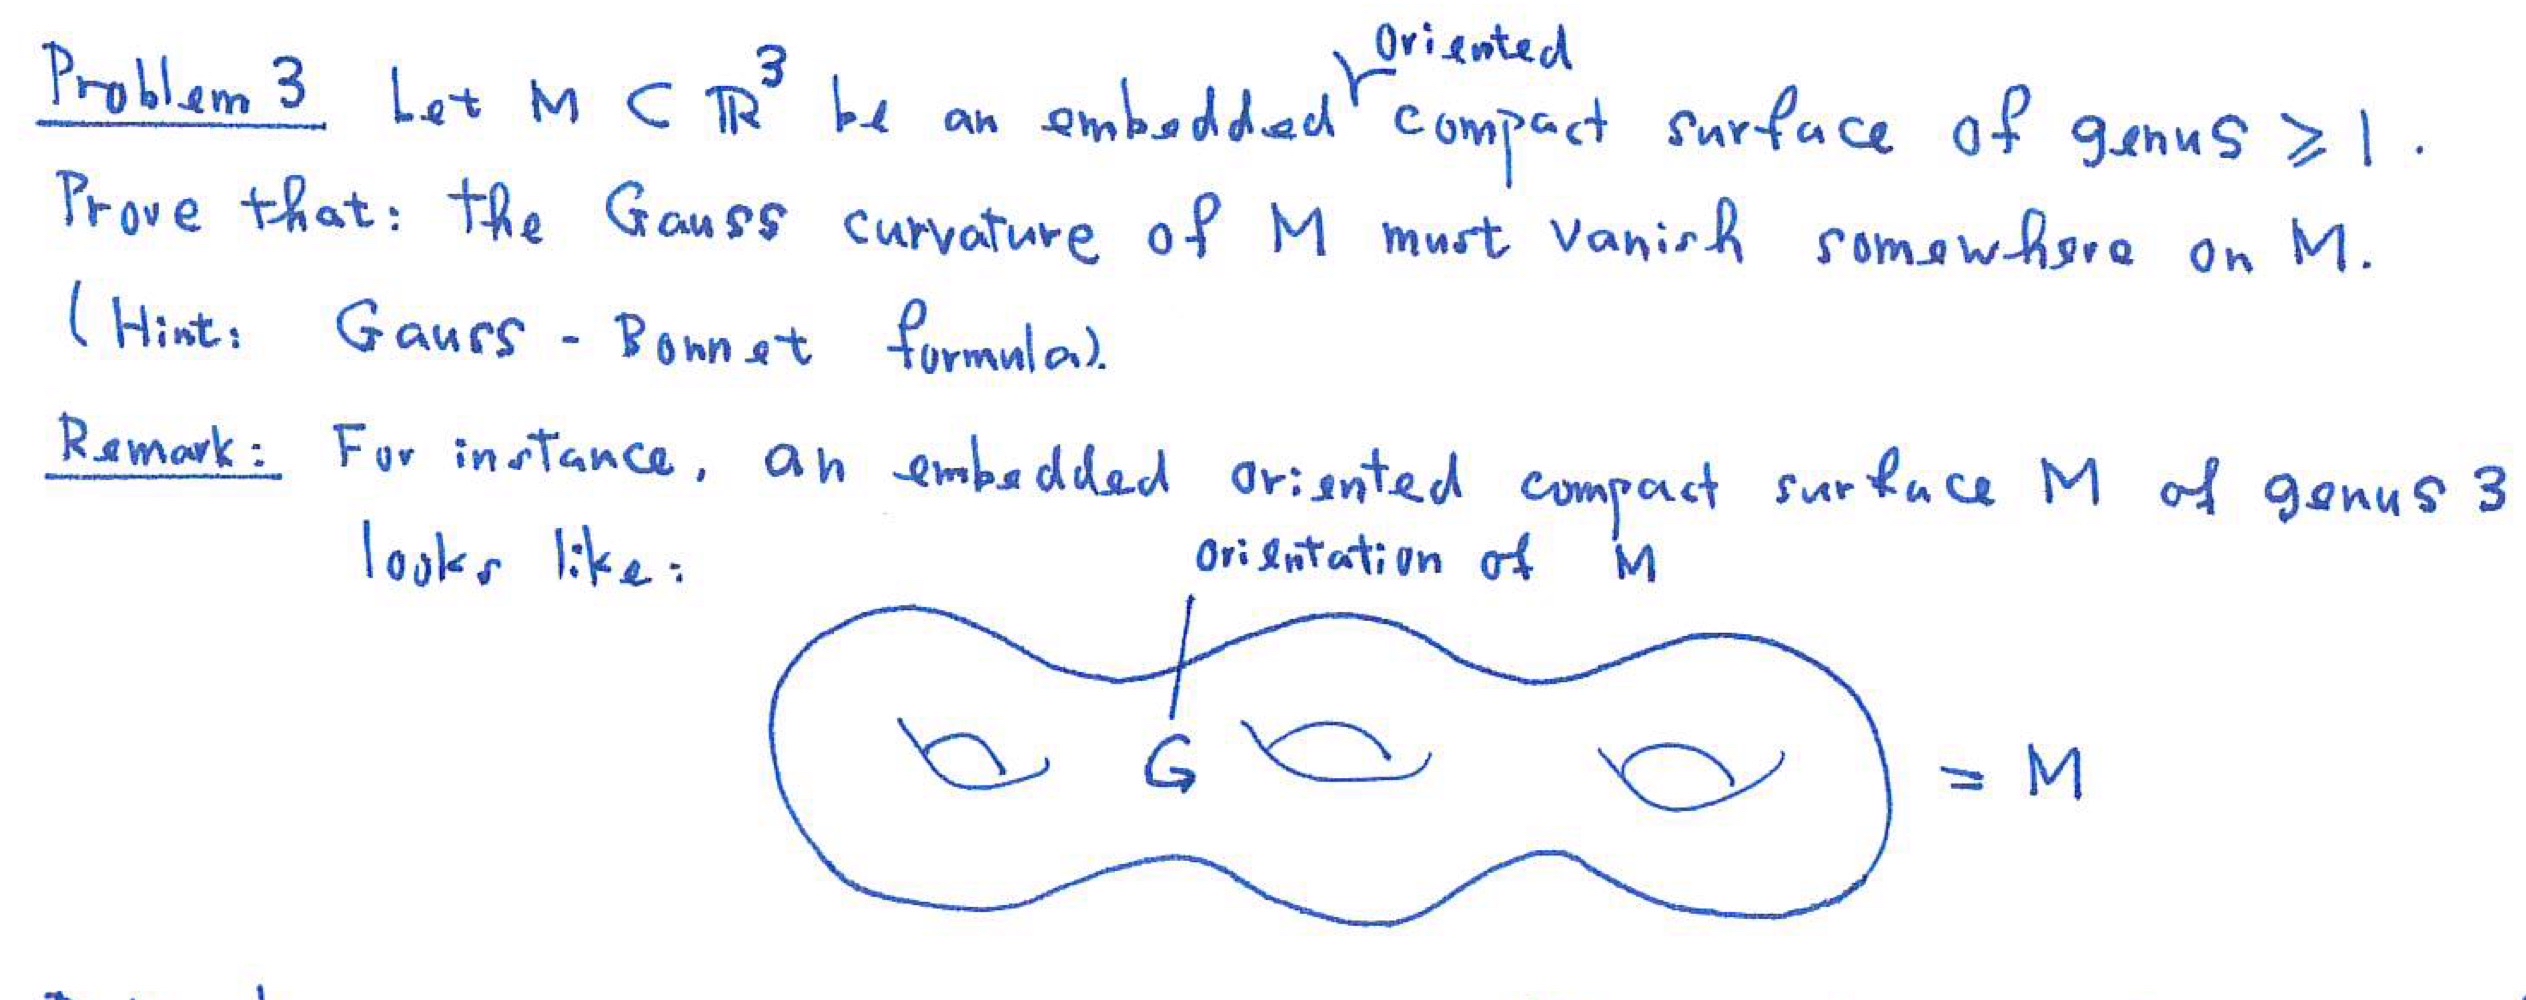 oriented
Problem 3 Let M ⊂ ℝ³ be an embedded compact surface of genus ≥ 1.
Prove that: the Gauss curvature of M must vanish somewhere on M.
(Hint: Gauss-Bonnet formula).
Remark: For instance, an embedded oriented compact surface M of genus 3
looks like:
orientation of M
= M